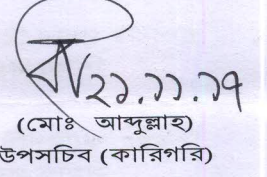 ২১.১১.১৭
(মোঃ আব্দুল্লাহ)
উপসচিব (কারিগরি)